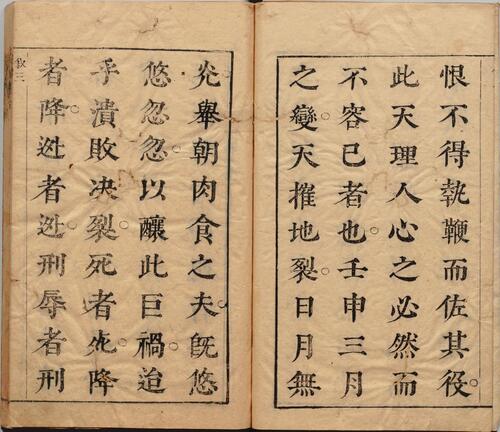 恨不得執鞭而佐其役
此天理人心之必然而
不容已者也壬申三月
之變天摧地裂日月無
光舉朝肉食之夫旣悠
悠忽忽以釀此巨禍迨
乎潰敗决裂死者死降
者降逃者逃刑辱者刑
叙三